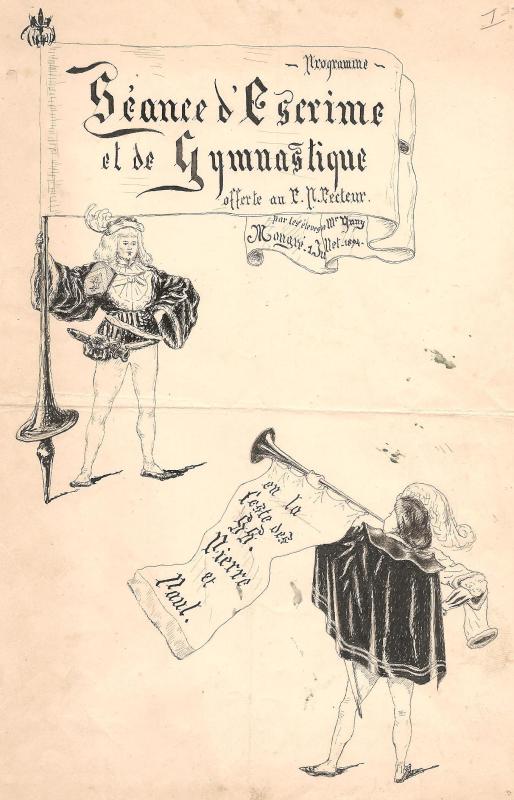 1
~ Programme ~
Séance d'Escrime
et de Gymnastique
offerte au R. P. Recteur.
par les élèves de Mr Yuny
Mongré. 1 Juillet. 1894.
en la
feste des
SS.
Pierre
et
Paul.